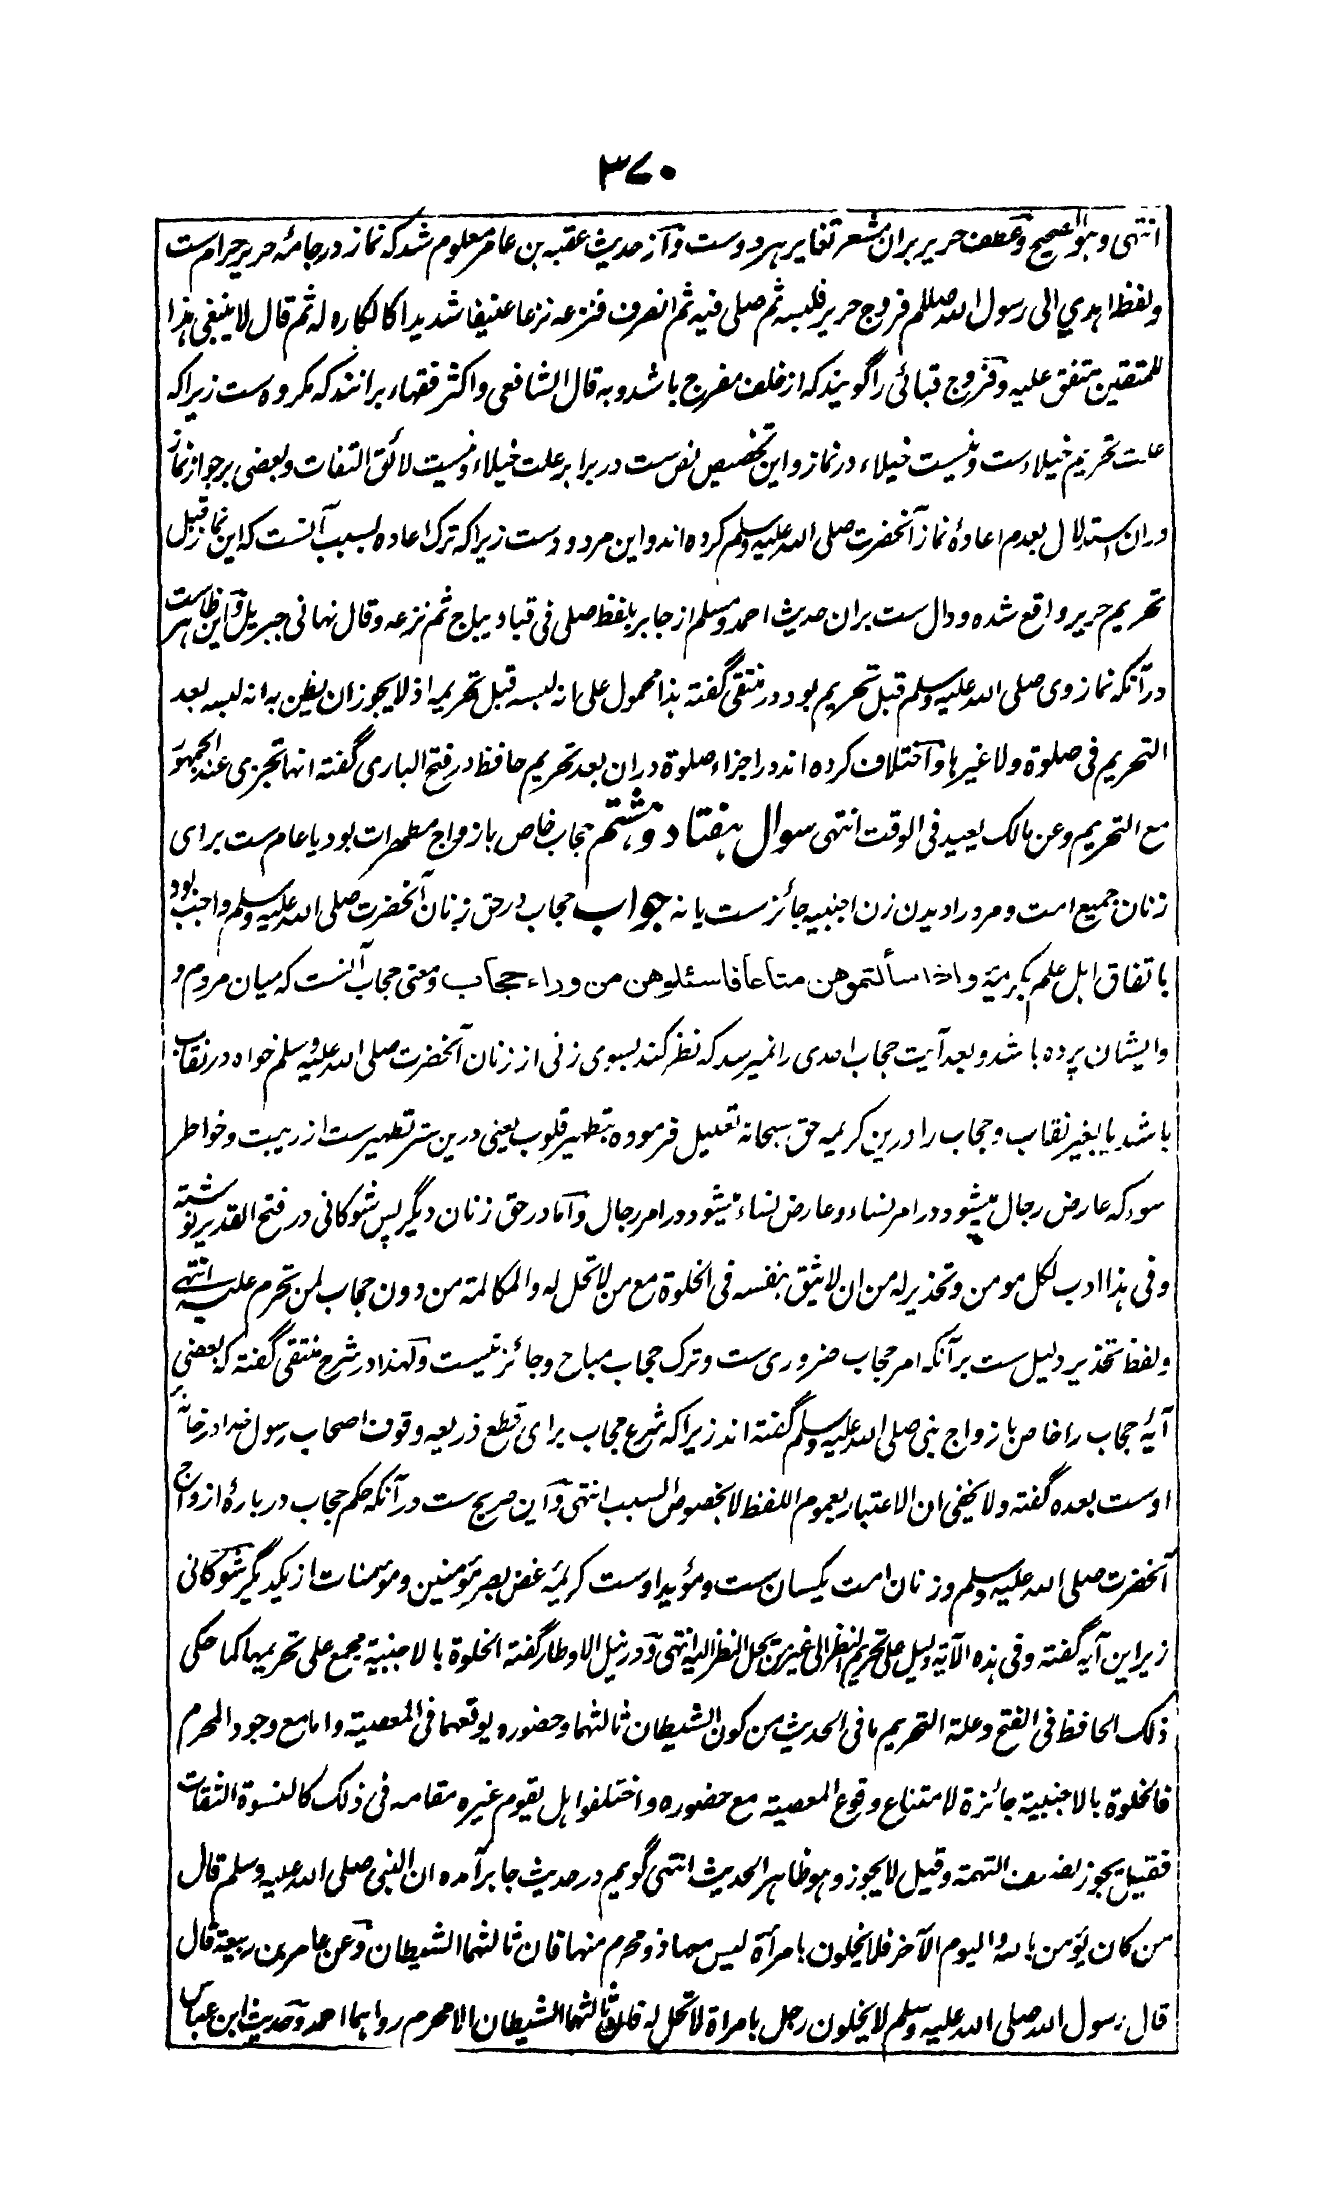 ۳۷۰
انتهی وهو الصحیح وعطف حریر بران مشعر تغایر هر دوست واز حدیث عقبه بن عامر معلوم شد که نماز در جامهٔ حریر حرام ست
ولفظ اهدي الی رسول الله صللم فروج حریر فلبسه ثم صلی فیه ثم انصرف فنزعه نزعا عنیفا شدیدا کالکاره له ثم قال لا ینبغی هذا
للمتقین متفق علیه وفروج قبائی را گویند که از خلف مفرج باشد و به قال الشافعی واکثر فقهاء برانند که مکروه ست زیرا که
علت تحریم خیلاء ست ونیست خیلاء در نماز واین تخصیص نص ست در برابر علت خیلاء ونیست لائق التفات وبعضی بر جواز نماز
دران استدلال بعدم اعادهٔ نماز آنحضرت صلی الله علیه وسلم کرده اند واین مردودست زیرا که ترک اعاده بسبب آنست که این نماز قبل
تحریم حریر واقع شده ودال ست بران حدیث احمد ومسلم از جابر بلفظ صلی فی قباء دیباج ثم نزعه وقال نهانی جبریل واین ظاهر است
در آنکه نماز وی صلی الله علیه وسلم قبل تحریم بود در منتقی گفته هذا محمول علی انه لبسه قبل تحریمه اذ لا یجوز ان یظن به انه لبسه بعد
التحریم فی صلوة ولا غیرها واختلاف کرده اند در اجزاء صلوة دران بعد تحریم حافظ در فتح الباری گفته انها تجزی عند الجمهور
مع التحریم وعن مالک یعید فی الوقت انتهی سوال هفتاد وهشتم حجاب خاص بازواج مطهرات بود یا عام ست برای
زنان جمیع امت ومرد را دیدن زن اجنبیه جائز ست یا نه جواب حجاب در حق زنان آنحضرت صلی الله علیه وسلم واجب بود
باتفاق اهل علم بکریمهٔ واذا سألتموهن متاعا فاسئلوهن من وراء حجاب ومعنی حجاب آنست که میان مردم و
وایشان پرده باشد وبعد آیت حجاب احدی را نمیرسد که نظر کند بسوی زنی از زنان آنحضرت صلی الله علیه وسلم خواه در نقاب
باشد یا بغیر نقاب وحجاب را درین کریمه حق سبحانه تعلیل فرموده بتطهیر قلوب یعنی درین ستر تطهیرست از ریبت وخواطر
سوء که عارض رجال میشود در امر نساء وعارض نساء میشود در امر رجال واما در حق زنان دیگر پس شوکانی در فتح القدیر نوشته
وفی هذا ادب لکل مومن وتحذیر له من ان لا یثق بنفسه فی الخلوة مع من لا تحل له والمکالمة من دون حجاب لمن تحرم علیه انتهی
ولفظ تحذیر دلیل ست بر آنکه امر حجاب ضروری ست وترک حجاب مباح وجائز نیست ولهذا در شرح منتقی گفته که بعضی
آیهٔ حجاب را خاص بازواج نبی صلی الله علیه وسلم گفته اند زیرا که شرع حجاب برای قطع ذریعه وقوف اصحاب رسول خدا در خانهٔ
اوست بعده گفته ولا یخفی ان الاعتبار بعموم اللفظ لا بخصوص السبب انتهی واین صریح ست در آنکه حکم حجاب دربارهٔ ازواج
آنحضرت صلی الله علیه وسلم وزنان امت یکسان ست ومؤید اوست کریمهٔ غض بصر مؤمنین ومؤمنات از یکدیگر شوکانی
زیر این آیه گفته وفی هذه الآیة دلیل علی تحریم النظر الی غیر من یحل النظر الیه انتهی ودر نیل الاوطار گفته الخلوة بالاجنبیة مجمع علی تحریمها کما حکی
ذلک الحافظ فی الفتح وعلة التحریم ما فی الحدیث من کون الشیطان ثالثهما وحضوره یوقعهما فی المعصیة واما مع وجود المحرم
فالخلوة بالاجنبیة جائزة لامتناع وقوع المعصیة مع حضوره واختلفوا هل یقوم غیره مقامه فی ذلک کالنسوة الثقات
فقیل یجوز لضعف التهمة وقیل لا یجوز وهو ظاهر الحدیث انتهی گویم در حدیث جابر آمده ان النبی صلی الله علیه وسلم قال
من کان یؤمن بالله والیوم الآخر فلا یخلون بامرأة لیس معها ذو محرم منها فان ثالثهما الشیطان وعن عامر بن ربیعة قال
قال رسول الله صلی الله علیه وسلم لا یخلون رجل بامراة لا تحل له فان ثالثهما الشیطان الا محرم رواهما احمد وحدیث ابن عباس